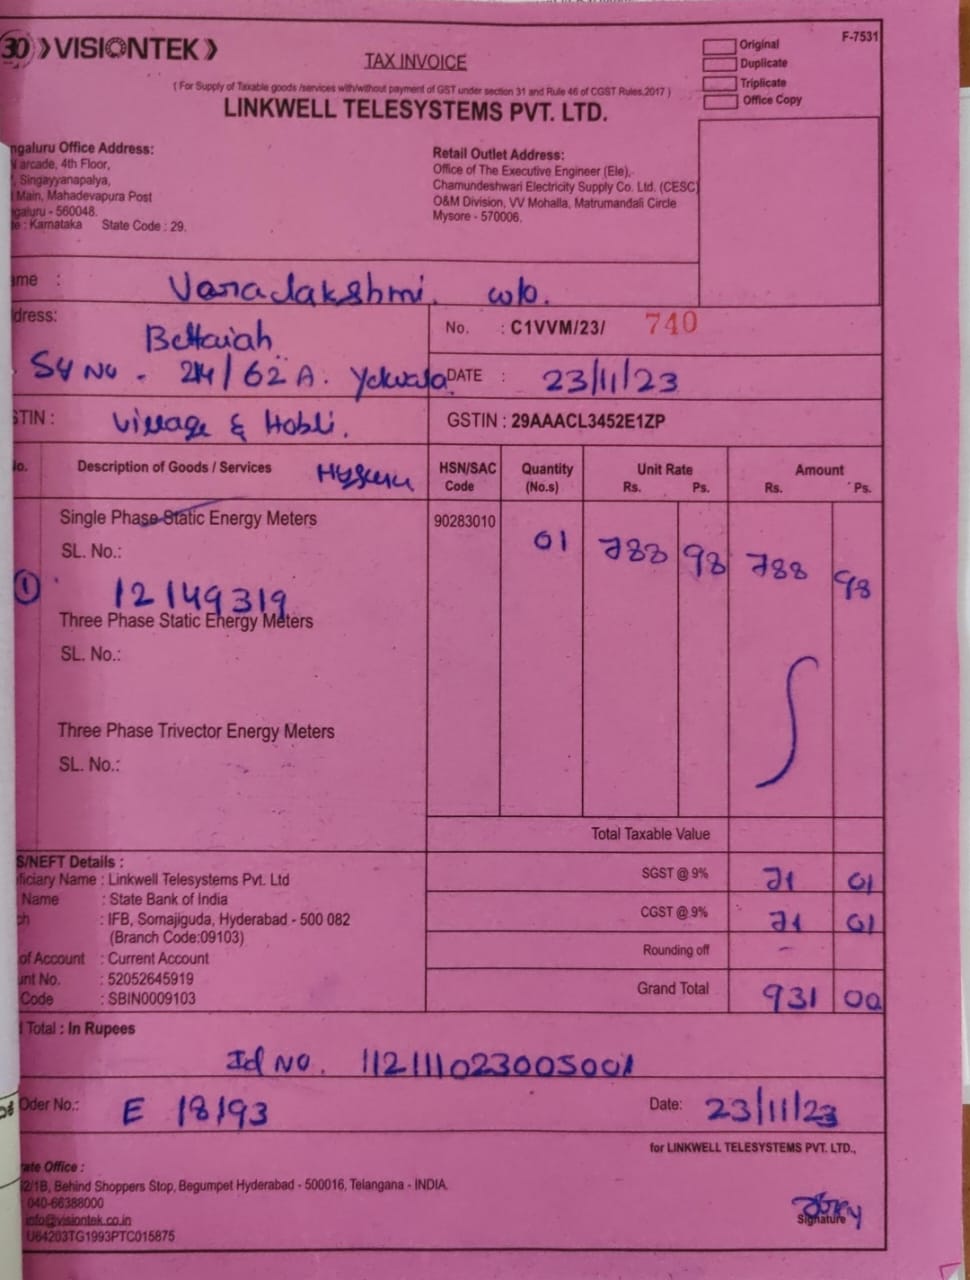 30 VISIONTEK
TAX INVOICE
F-7531
Original
Duplicate
Triplicate
Office Copy
( For Supply of Taxable goods /services with/without payment of GST under section 31 and Rule 46 of CGST Rules,2017 )
LINKWELL TELESYSTEMS PVT. LTD.
ngaluru Office Address:
arcade, 4th Floor,
Singayyanapalya,
Main, Mahadevapura Post
galuru - 560048.
te : Karnataka State Code : 29.
Retail Outlet Address:
Office of The Executive Engineer (Ele),
Chamundeshwari Electricity Supply Co. Ltd. (CESC)
O&M Division, VV Mohalla, Matrumandali Circle
Mysore - 570006.
ame : Varadakshmi. w/o.
dress:
Bettaiah
No. : C1VVM/23/ 740
Sy No - 214/62A. Yelwala
DATE : 23/11/23
STIN : Village & Hobli.
GSTIN : 29AAACL3452E1ZP
o. Description of Goods / Services HSN/SAC Code Quantity (No.s) Unit Rate Rs. Ps. Amount Rs. Ps.
Single Phase Static Energy Meters 90283010 01 788 98 788 98
SL. No.:
1 12149319
Three Phase Static Energy Meters
SL. No.:
Three Phase Trivector Energy Meters
SL. No.:
Total Taxable Value
S/NEFT Details :
ficiary Name : Linkwell Telesystems Pvt. Ltd
Name : State Bank of India
ch : IFB, Somajiguda, Hyderabad - 500 082
(Branch Code:09103)
of Account : Current Account
unt No. : 52052645919
Code : SBIN0009103
SGST @ 9% 71 01
CGST @ 9% 71 01
Rounding off -
Grand Total 931 00
Total : In Rupees
Id No. 112111023005001
Oder No.: E 18193
Date: 23/11/23
for LINKWELL TELESYSTEMS PVT. LTD.,
rate Office :
2/1B, Behind Shoppers Stop, Begumpet Hyderabad - 500016, Telangana - INDIA.
040-66388000
info@visiontek.co.in
U64203TG1993PTC015875
Signature